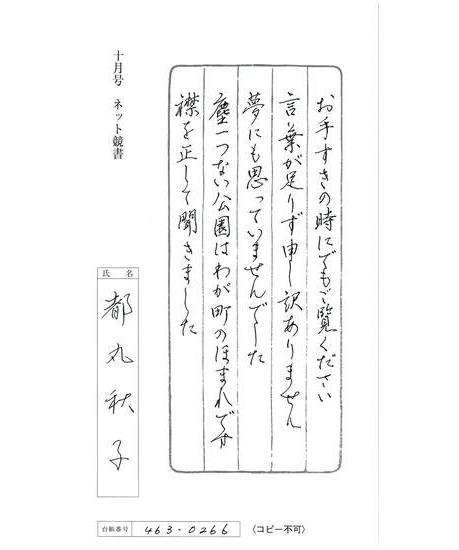 お手すきの時にでもご覧ください
言葉が足りず申し訳ありません
夢にも思っていませんでした
塵一つない公園はわが町のほまれです
襟を正して聞きました
十月号 ネット競書
氏名
都丸秋子
台帳番号 463-0266
〈コピー不可〉